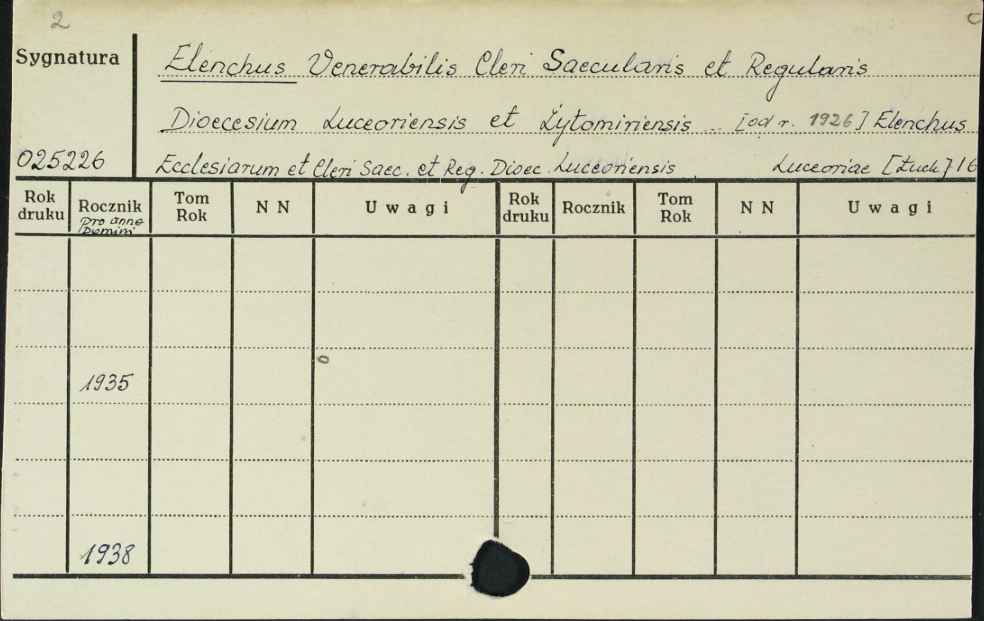 2
Sygnatura
Elenchus Venerabilis Cleri Saecularis et Regularis
Dioecesium Luceoriensis et Żytomiriensis .. [od r. 1926] Elenchus
025226
Ecclesiarum et Cleri Saec. et Reg. Dioec. Luceoriensis Luceoriae [Łuck] 16
Rok druku Rocznik Tom Rok NN Uwagi Rok druku Rocznik Tom Rok NN Uwagi
pro anno Domini
1935
1938